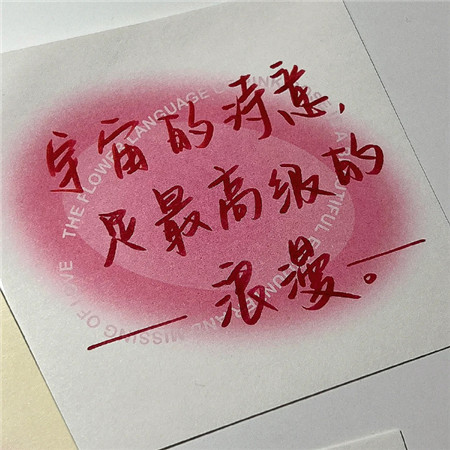 宇宙的诗意，
是最高级的
浪漫。
THE FLOWER LANGUAGE
AND MISSING OF LOVE